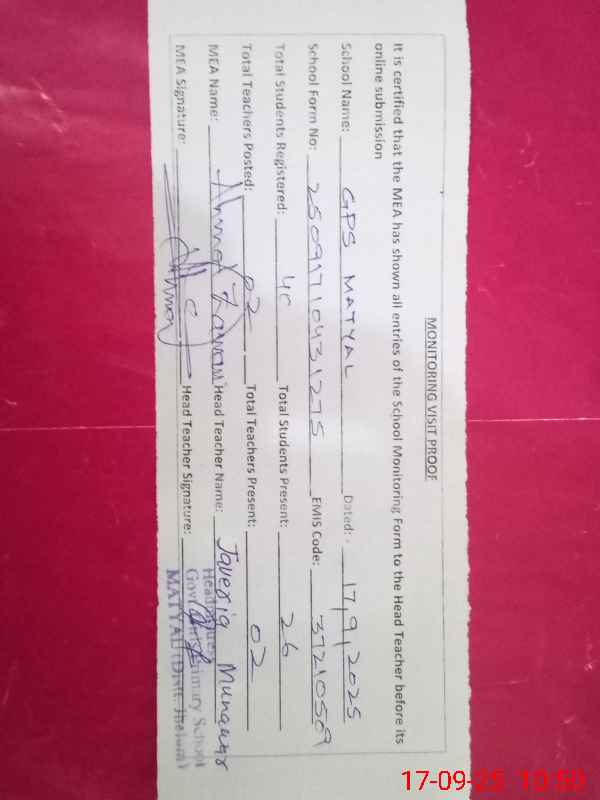 MONITORING VISIT PROOF
It is certified that the MEA has shown all entries of the School Monitoring Form to the Head Teacher before its
online submission
School Name: GPS MATYAL Dated: 17/9/2025
School Form No: 25091710431275 EMIS Code: 37210509
Total Students Registered: 40 Total Students Present: 26
Total Teachers Posted: 02 Total Teachers Present: 02
MEA Name: Head Teacher Name: Javeria Munawar
MEA Signature: Head Teacher Signature:
Headmistress
Govt Primary School
MATYAL (Distt: Jhelum)
17-09-25 10:50